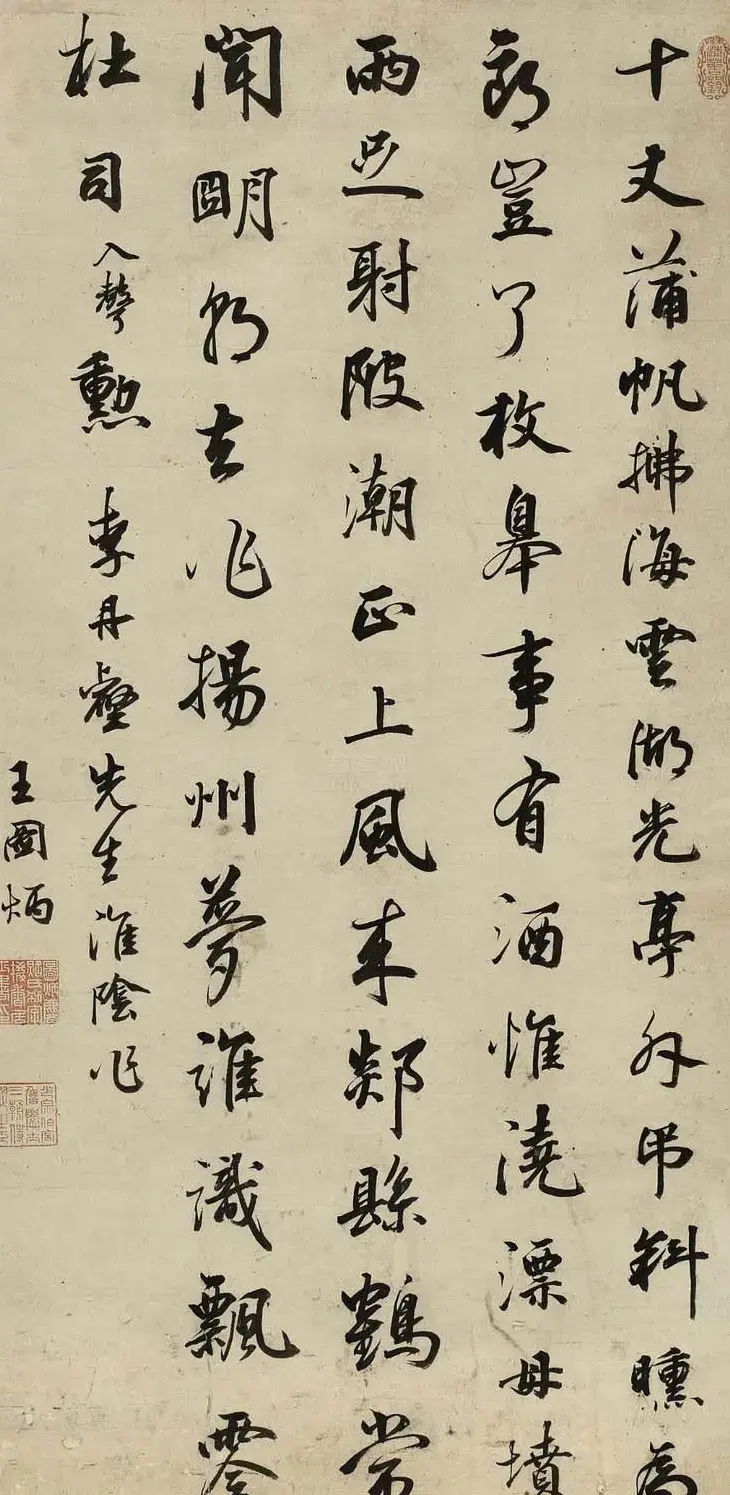 十丈蒲帆拂海雲湖光亭外弔斜曛為
郎豈了枚皋事有酒惟澆漂母墳
雨足射陂潮正上風來郯縣鶴常
聞明朝去作揚州夢誰識飄零
杜司入聲勳李丹壑先生淮陰作
王圖炳